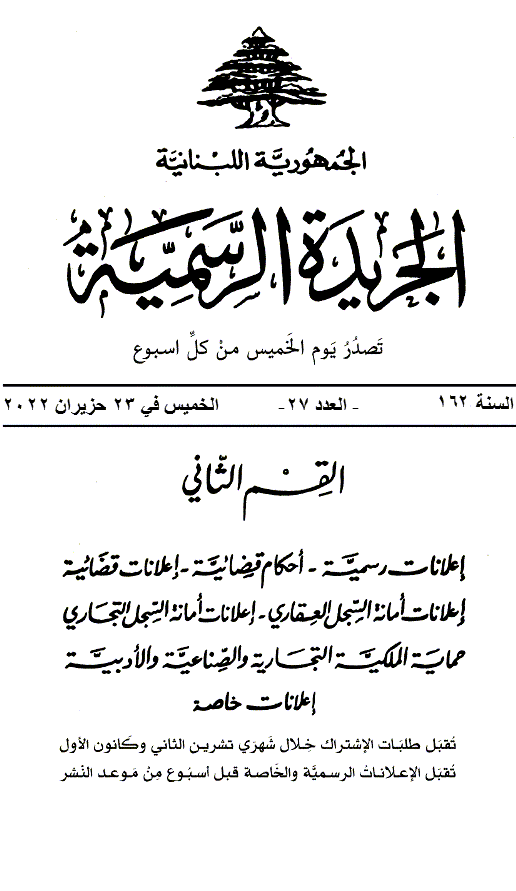 الجُمهُوريَّة اللبْنانيَّة
الجَريدَة الرسَّميَّة
تَصدُرُ يَوم الخَميس منْ كلِّ اسبوع
السنة ١٦٢ - العدد ٢٧- الخميس في ٢٣ حزيران ٢٠٢٢
القِسْم الثّاني
إعلانات رسميَّة - أحكام قضائيَّة - إعلانات قضائية
إعلانات أمانة السِّجل العقاري - إعلانات أمانة السِّجل التجاري
حماية الملكيَّة التجارية والصِّناعيَّة والأدبيَّة
إعلانات خاصة
تُقبَل طلبَات الإشتراك خِلال شَهرَي تشرين الثاني وكَانون الأول
تُقبَل الإعلاناتُ الرسميَّة والخَاصة قبل أسبُوع مِنْ مَوعد النّشر